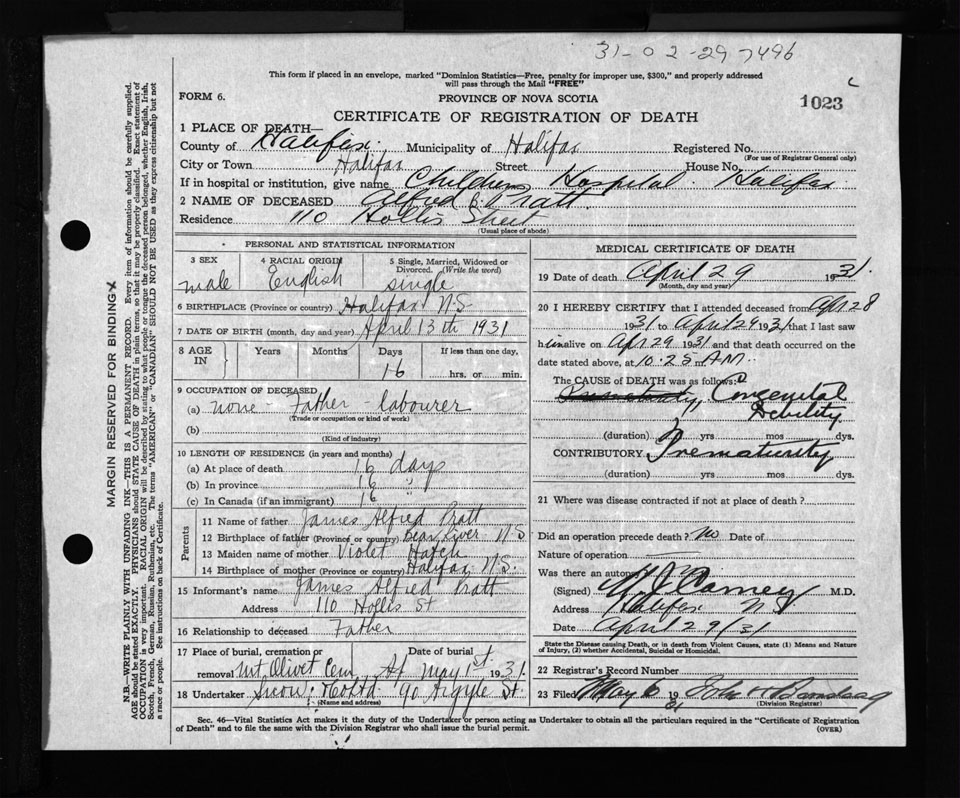 31-02-29 7496
This form if placed in an envelope, marked "Dominion Statistics—Free, penalty for improper use, $300," and properly addressed
will pass through the Mail "FREE"
FORM 6.
PROVINCE OF NOVA SCOTIA
1023
CERTIFICATE OF REGISTRATION OF DEATH
1 PLACE OF DEATH—
County of Halifax Municipality of Halifax Registered No.
(For use of Registrar General only)
City or Town Halifax Street House No.
If in hospital or institution, give name Childrens Hospital Halifax
2 NAME OF DECEASED Alfred Pratt
Residence 110 Hollis Street
(Usual place of abode)
PERSONAL AND STATISTICAL INFORMATION
3 SEX 4 RACIAL ORIGIN 5 Single, Married, Widowed or
Divorced. (Write the word)
male English single
6 BIRTHPLACE (Province or Country) Halifax N.S.
7 DATE OF BIRTH (month, day and year) April 13th 1931
8 AGE IN Years Months Days If less than one day,
16 hrs. or min.
9 OCCUPATION OF DECEASED
(a) none - Father - labourer
(Trade or occupation or kind of work)
(b)
(Kind of industry)
10 LENGTH OF RESIDENCE (in years and months)
(a) At place of death 16 days
(b) In province 16 "
(c) In Canada (if an immigrant) 16
Parents
11 Name of father James Alfred Pratt
12 Birthplace of father (Province or country) Bear River N.S.
13 Maiden name of mother Violet Hatch
14 Birthplace of mother (Province or country) Halifax N.S.
15 Informant's name James Alfred Pratt
Address 110 Hollis St
16 Relationship to deceased Father
17 Place of burial, cremation or Date of burial
removal Mt Olivet Cem May 1st 1931
18 Undertaker Snow & Co Ltd 90 Argyle St.
(Name and address)
MEDICAL CERTIFICATE OF DEATH
19 Date of death April 29 1931.
(Month, day and year)
20 I HEREBY CERTIFY that I attended deceased from Apr 28
1931 to April 29 1931 that I last saw
him alive on Apr 29 1931 and that death occurred on the
date stated above, at 10:25 AM.
The CAUSE OF DEATH was as follows:
Prematurity, Congenital
Debility
(duration) yrs mos dys.
CONTRIBUTORY Prematurity
(duration) yrs mos dys.
21 Where was disease contracted if not at place of death?
Did an operation precede death? No Date of
Nature of operation
Was there an autopsy
(Signed) M.D.
Address Halifax N.S.
Date April 29/31
State the Disease causing Death, or in death from Violent Causes, state (1) Means and Nature
of Injury, (2) whether Accidental, Suicidal or Homicidal.
22 Registrar's Record Number
23 Filed May 6 1931 John
(Division Registrar)
Sec. 46—Vital Statistics Act makes it the duty of the Undertaker or person acting as Undertaker to obtain all the particulars required in the "Certificate of Registration
of Death" and to file the same with the Division Registrar who shall issue the burial permit.
(OVER)
MARGIN RESERVED FOR BINDING
N.B.—WRITE PLAINLY WITH UNFADING INK—THIS IS A PERMANENT RECORD. Every item of information should be carefully supplied.
AGE should be stated EXACTLY. PHYSICIANS should STATE CAUSE OF DEATH in plain terms, so that it may be properly classified. Exact statement of
OCCUPATION is very important. RACIAL ORIGIN will be described by stating to what people or tongue the deceased person belonged, whether English, Irish,
Scotch, French, German, Russian, Ruthenian, etc. The terms "AMERICAN" or "CANADIAN" SHOULD NOT BE USED as they express citizenship but not
a race or people. See instructions on back of Certificate.